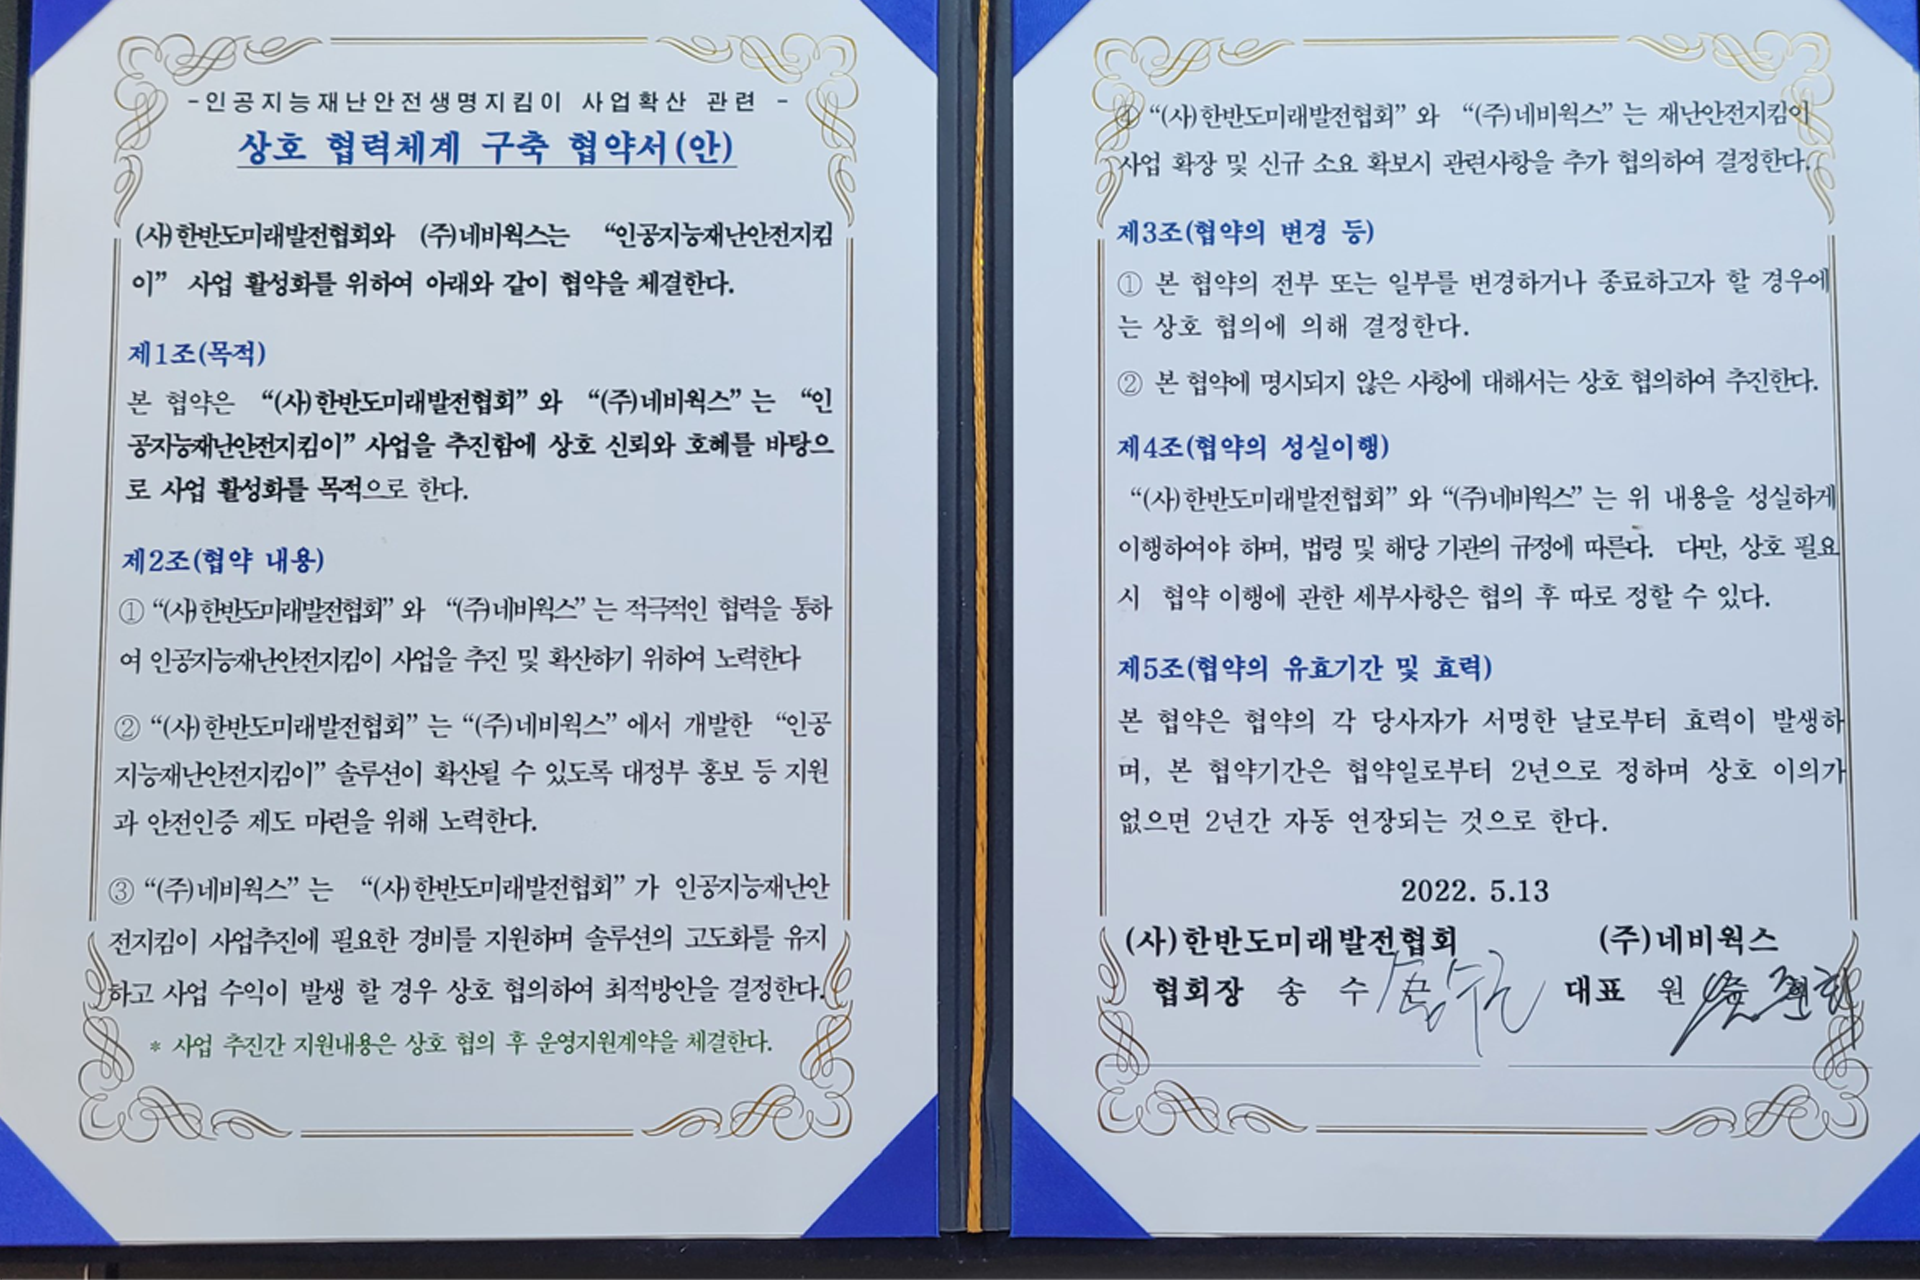 -인공지능재난안전생명지킴이 사업확산 관련 -
상호 협력체계 구축 협약서(안)
(사)한반도미래발전협회와 (주)네비웍스는 “인공지능재난안전지킴
이” 사업 활성화를 위하여 아래와 같이 협약을 체결한다.
제1조(목적)
본 협약은 “(사)한반도미래발전협회”와 “(주)네비웍스”는 “인
공지능재난안전지킴이” 사업을 추진함에 상호 신뢰와 호혜를 바탕으
로 사업 활성화를 목적으로 한다.
제2조(협약 내용)
① “(사)한반도미래발전협회”와 “(주)네비웍스”는 적극적인 협력을 통하
여 인공지능재난안전지킴이 사업을 추진 및 확산하기 위하여 노력한다
② “(사)한반도미래발전협회”는 “(주)네비웍스”에서 개발한 “인공
지능재난안전지킴이” 솔루션이 확산될 수 있도록 대정부 홍보 등 지원
과 안전인증 제도 마련을 위해 노력한다.
③ “(주)네비웍스”는 “(사)한반도미래발전협회”가 인공지능재난안
전지킴이 사업추진에 필요한 경비를 지원하며 솔루션의 고도화를 유지
하고 사업 수익이 발생 할 경우 상호 협의하여 최적방안을 결정한다.
* 사업 추진간 지원내용은 상호 협의 후 운영지원계약을 체결한다.
④ “(사)한반도미래발전협회”와 “(주)네비웍스”는 재난안전지킴이
사업 확장 및 신규 소요 확보시 관련사항을 추가 협의하여 결정한다.
제3조(협약의 변경 등)
① 본 협약의 전부 또는 일부를 변경하거나 종료하고자 할 경우에
는 상호 협의에 의해 결정한다.
② 본 협약에 명시되지 않은 사항에 대해서는 상호 협의하여 추진한다.
제4조(협약의 성실이행)
“(사)한반도미래발전협회”와 “(주)네비웍스”는 위 내용을 성실하게
이행하여야 하며, 법령 및 해당 기관의 규정에 따른다. 다만, 상호 필요
시 협약 이행에 관한 세부사항은 협의 후 따로 정할 수 있다.
제5조(협약의 유효기간 및 효력)
본 협약은 협약의 각 당사자가 서명한 날로부터 효력이 발생하
며, 본 협약기간은 협약일로부터 2년으로 정하며 상호 이의가
없으면 2년간 자동 연장되는 것으로 한다.
2022. 5.13
(사)한반도미래발전협회 (주)네비웍스
협회장 송 수 대표 원